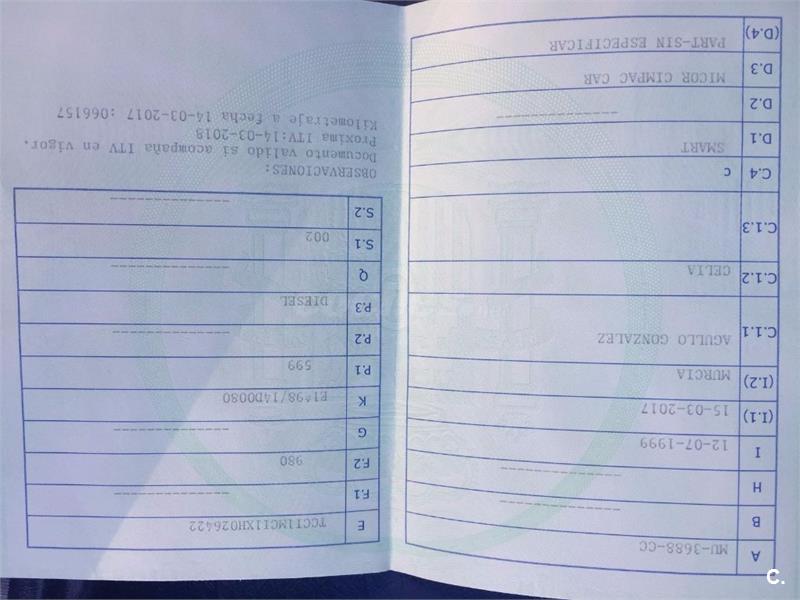 A MU-3688-CC
B ------------
H ------------
I 12-07-1999
(I.1) 15-03-2017
(I.2) MURCIA
C.1.1 AGULLO GONZALEZ
C.1.2 CELIA
C.1.3
C.4 c
D.1 SMART
D.2 ------------
D.3 MICOR CIMPAC CAR
(D.4) PART-SIN ESPECIFICAR
E TCC11MC11XH026422
F.1 ------------
F.2 980
G ------------
K E1*98/14D0080
P.1 599
P.2 ------------
P.3 DIESEL
Q ------------
S.1 002
S.2 ------------
OBSERVACIONES:
Documento valido si acompaña ITV en vigor.
Proxima ITV:14-03-2018
Kilometraje a fecha 14-03-2017 :066157
C.